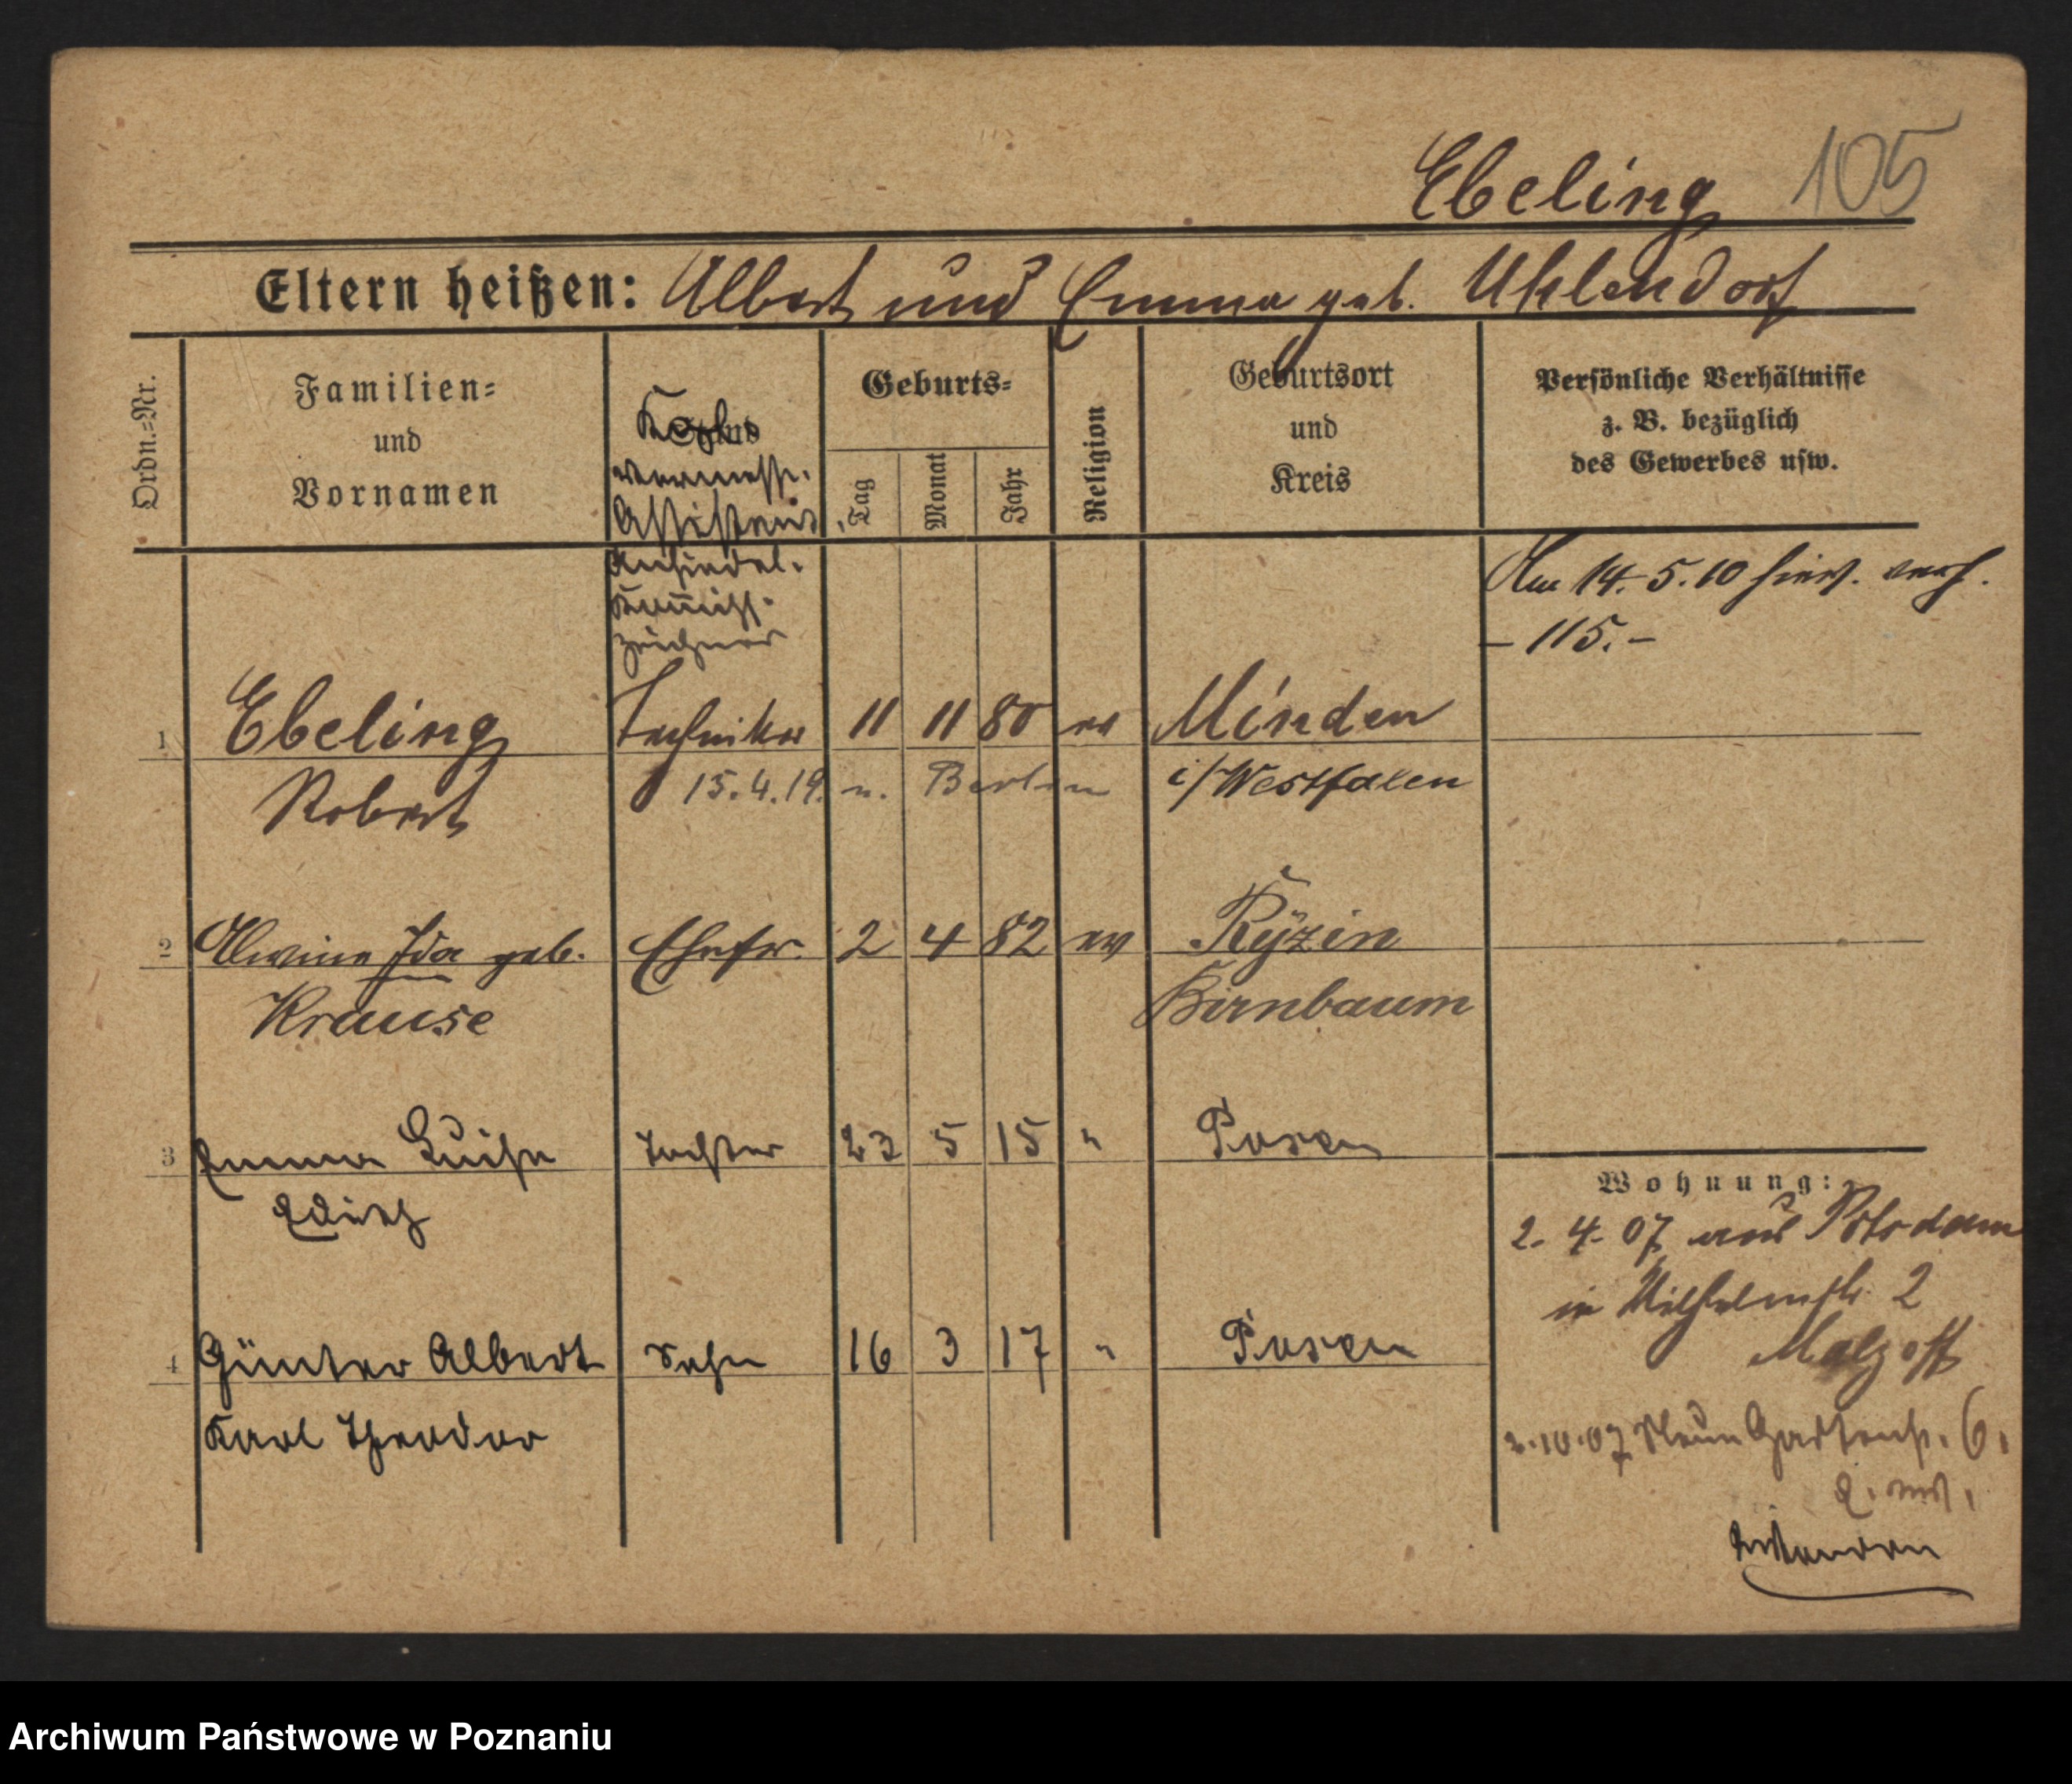 Ebeling 105
Eltern heißen: Albert und Emma geb. Uhlendorf
Ordn.=Nr.
Familien=
und
Vornamen
Stand
Assistent
Ansiedel.
Kommiss.
Zeichner
Geburts=
Tag
Monat
Jahr
Religion
Geburtsort
und
Kreis
Persönliche Verhältnisse
z. B. bezüglich
des Gewerbes usw.
Am 14.5.10 hier. verh.
– 115. –
1 Ebeling Techniker 11 11 80 ev Minden
Robert 15.4.19. n. Berlin i/Westfalen
2 Alwine Ida geb. Ehefr. 2 4 82 ev Ryzin
Krause Birnbaum
3 Emma Luise Tochter 23 5 15 " Posen
Edith
4 Günter Albert Sohn 16 3 17 " Posen
Karl Theodor
Wohnung:
2.4.07 aus Potsdam
in Wilhelmstr. 2
2.10.07 Neue Gartenstr. 6.